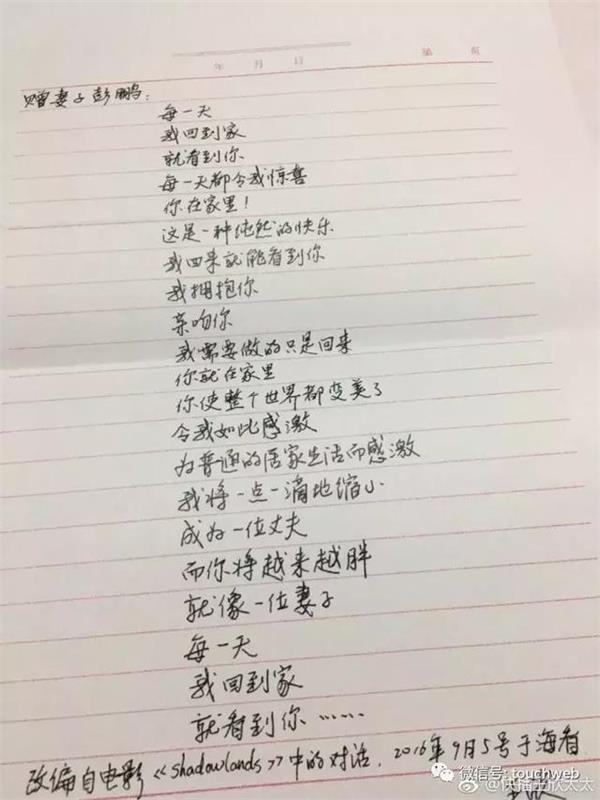 年 月 日 第 页
赠妻子彭鹏：
每一天
我回到家
就看到你
每一天都令我惊喜
你在家里！
这是一种纯然的快乐
我回来就能看到你
我拥抱你
亲吻你
我需要做的只是回来
你就在家里
你使整个世界都变美了
令我如此感激
为普通的居家生活而感激
我将一点一滴地缩小
成为一位丈夫
而你将越来越胖
就像一位妻子
每一天
我回到家
就看到你……
改编自电影《Shadowlands》中的对话，2016年9月5号于海看
微信号: touchweb
@快播王欣太太